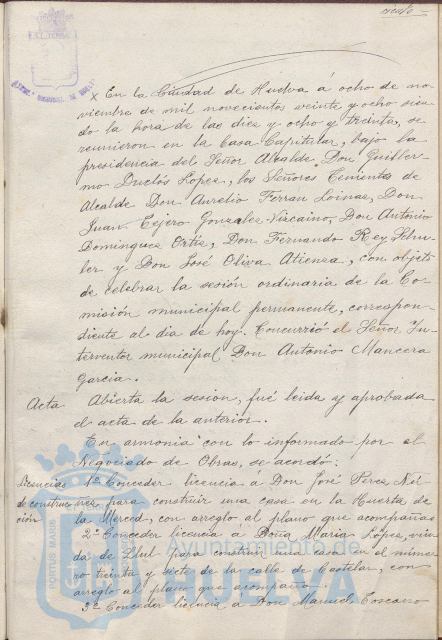 ciento
x En la Ciudad de Huelva á ocho de no-
viembre de mil novecientos veinte y ocho sien-
do la hora de las diez y ocho y treinta, se
reunieron en la Casa Capitular, bajo la
presidencia del Señor Alcalde Don Guiller-
mo Duclós Lopez, los Señores Tenientes de
Alcalde Don Aurelio Ferran Loinaz, Don
Juan Tejero Gonzalez-Vizcaino, Don Antonio
Dominguez Ortiz, Don Fernando Rey Schu-
ler y Don José Oliva Atienza, con objeto
de celebrar la sesión ordinaria de la Co-
misión municipal permanente, correspon-
diente al dia de hoy. Concurrió el Señor In-
terventor municipal Don Antonio Mancera
Garcia.
Acta Abierta la sesion, fué leida y aprobada
el acta de la anterior.
En armonia con lo informado por el
Negociado de Obras, se acordó:
Licencias 1º Conceder licencia a Don José Perez
de construc- para construir una casa en la Huerta de
ción la Merced, con arreglo al plano que acompaña.
2º Conceder licencia a Doña Maria Lopez, viu-
da de para construir la casa en el núme-
ro treinta y siete de la calle de Castelar, con
arreglo al plano que acompaña.
3º Conceder licencia a Don Manuel Toscano
PORTUS MARIS
Ayuntamiento de
HUELVA